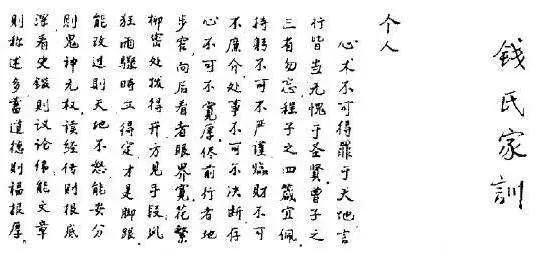 錢氏家訓
个人
心术不可得罪于天地言
行皆当无愧于圣贤曾子之
三者勿忘程子之四箴宜佩
持躬不可不严谨臨财不可
不廉介处事不可不决断存
心不可不寬厚侭前行者地
步窄向后看者眼界寬花繁
柳密处拨得开方见手段风
狂雨骤时立得定才是脚跟
能改过则天地不怒能安分
则鬼神无权读经传则根底
深看史鑑则议论伟能文章
则称述多蓄道德则福报厚。